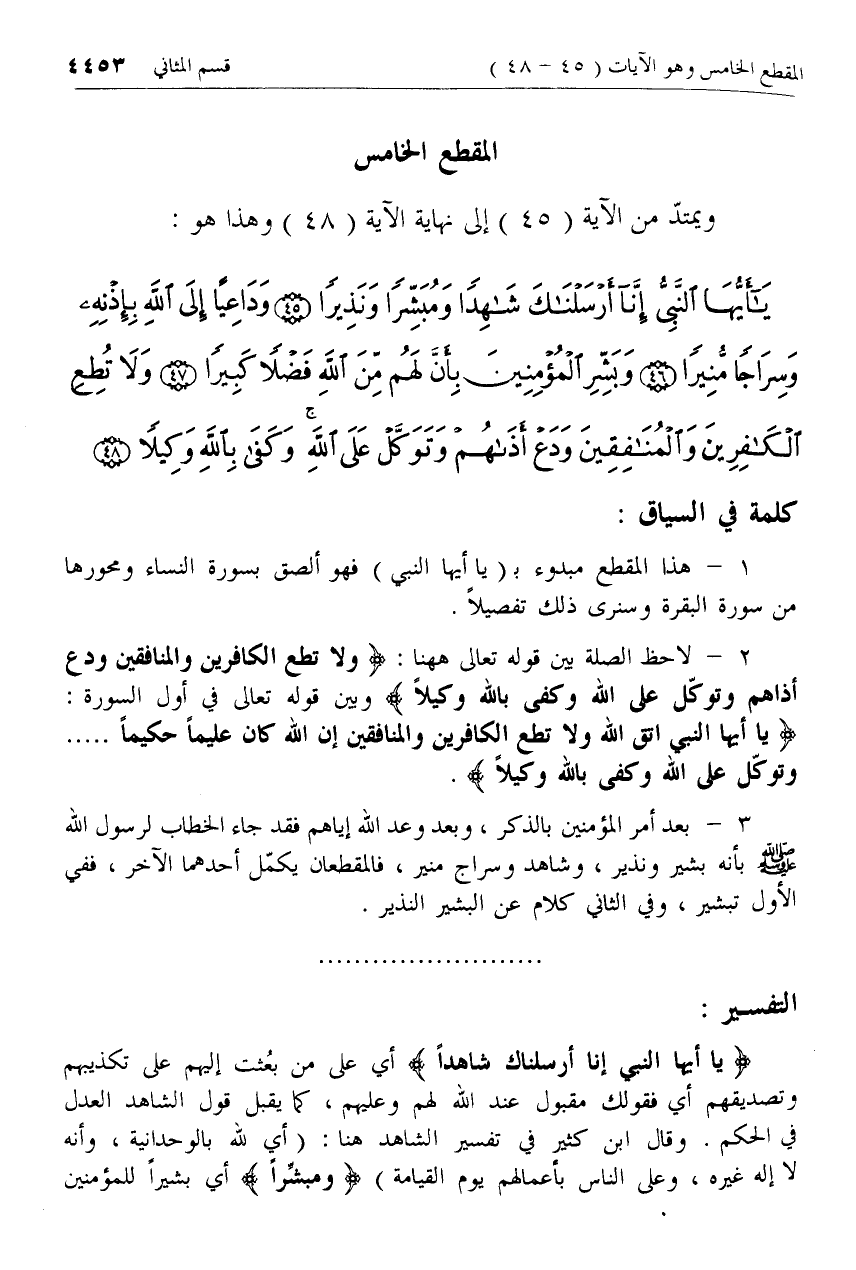 المقطع الخامس وهو الآيات ( ٤٥ – ٤٨ ) قسم المثاني ٤٤٥٣
المقطع الخامس
ويمتدّ من الآية ( ٤٥ ) إلى نهاية الآية ( ٤٨ ) وهذا هو :
يَـٰٓأَيُّهَا ٱلنَّبِىُّ إِنَّآ أَرْسَلْنَـٰكَ شَـٰهِدًا وَمُبَشِّرًا وَنَذِيرًا ﴿٤٥﴾ وَدَاعِيًا إِلَى ٱللَّهِ بِإِذْنِهِۦ
وَسِرَاجًا مُّنِيرًا ﴿٤٦﴾ وَبَشِّرِ ٱلْمُؤْمِنِينَ بِأَنَّ لَهُم مِّنَ ٱللَّهِ فَضْلًا كَبِيرًا ﴿٤٧﴾ وَلَا تُطِعِ
ٱلْكَـٰفِرِينَ وَٱلْمُنَـٰفِقِينَ وَدَعْ أَذَىٰهُمْ وَتَوَكَّلْ عَلَى ٱللَّهِ ۚ وَكَفَىٰ بِٱللَّهِ وَكِيلًا ﴿٤٨﴾
كلمة في السياق :
١ – هذا المقطع مبدوء بـ ( يا أيها النبي ) فهو ألصق بسورة النساء ومحورها
من سورة البقرة وسنرى ذلك تفصيلاً .
٢ – لاحظ الصلة بين قوله تعالى ههنا : ﴿ ولا تطع الكافرين والمنافقين ودع
أذاهم وتوكّل على الله وكفى بالله وكيلاً ﴾ وبين قوله تعالى في أول السورة :
﴿ يا أيها النبي اتق الله ولا تطع الكافرين والمنافقين إن الله كان عليماً حكيماً .....
وتوكّل على الله وكفى بالله وكيلاً ﴾ .
٣ – بعد أمر المؤمنين بالذكر ، وبعد وعد الله إياهم فقد جاء الخطاب لرسول الله
ﷺ بأنه بشير ونذير ، وشاهد وسراج منير ، فالمقطعان يكمّل أحدهما الآخر ، ففي
الأول تبشير ، وفي الثاني كلام عن البشير النذير .
.........................
التفسير :
﴿ يا أيها النبي إنا أرسلناك شاهداً ﴾ أي على من بُعثت إليهم على تكذيبهم
وتصديقهم أي فقولك مقبول عند الله لهم وعليهم ، كما يقبل قول الشاهد العدل
في الحكم . وقال ابن كثير في تفسير الشاهد هنا : ( أي لله بالوحدانية ، وأنه
لا إله غيره ، وعلى الناس بأعمالهم يوم القيامة ) ﴿ ومبشِّراً ﴾ أي بشيراً للمؤمنين